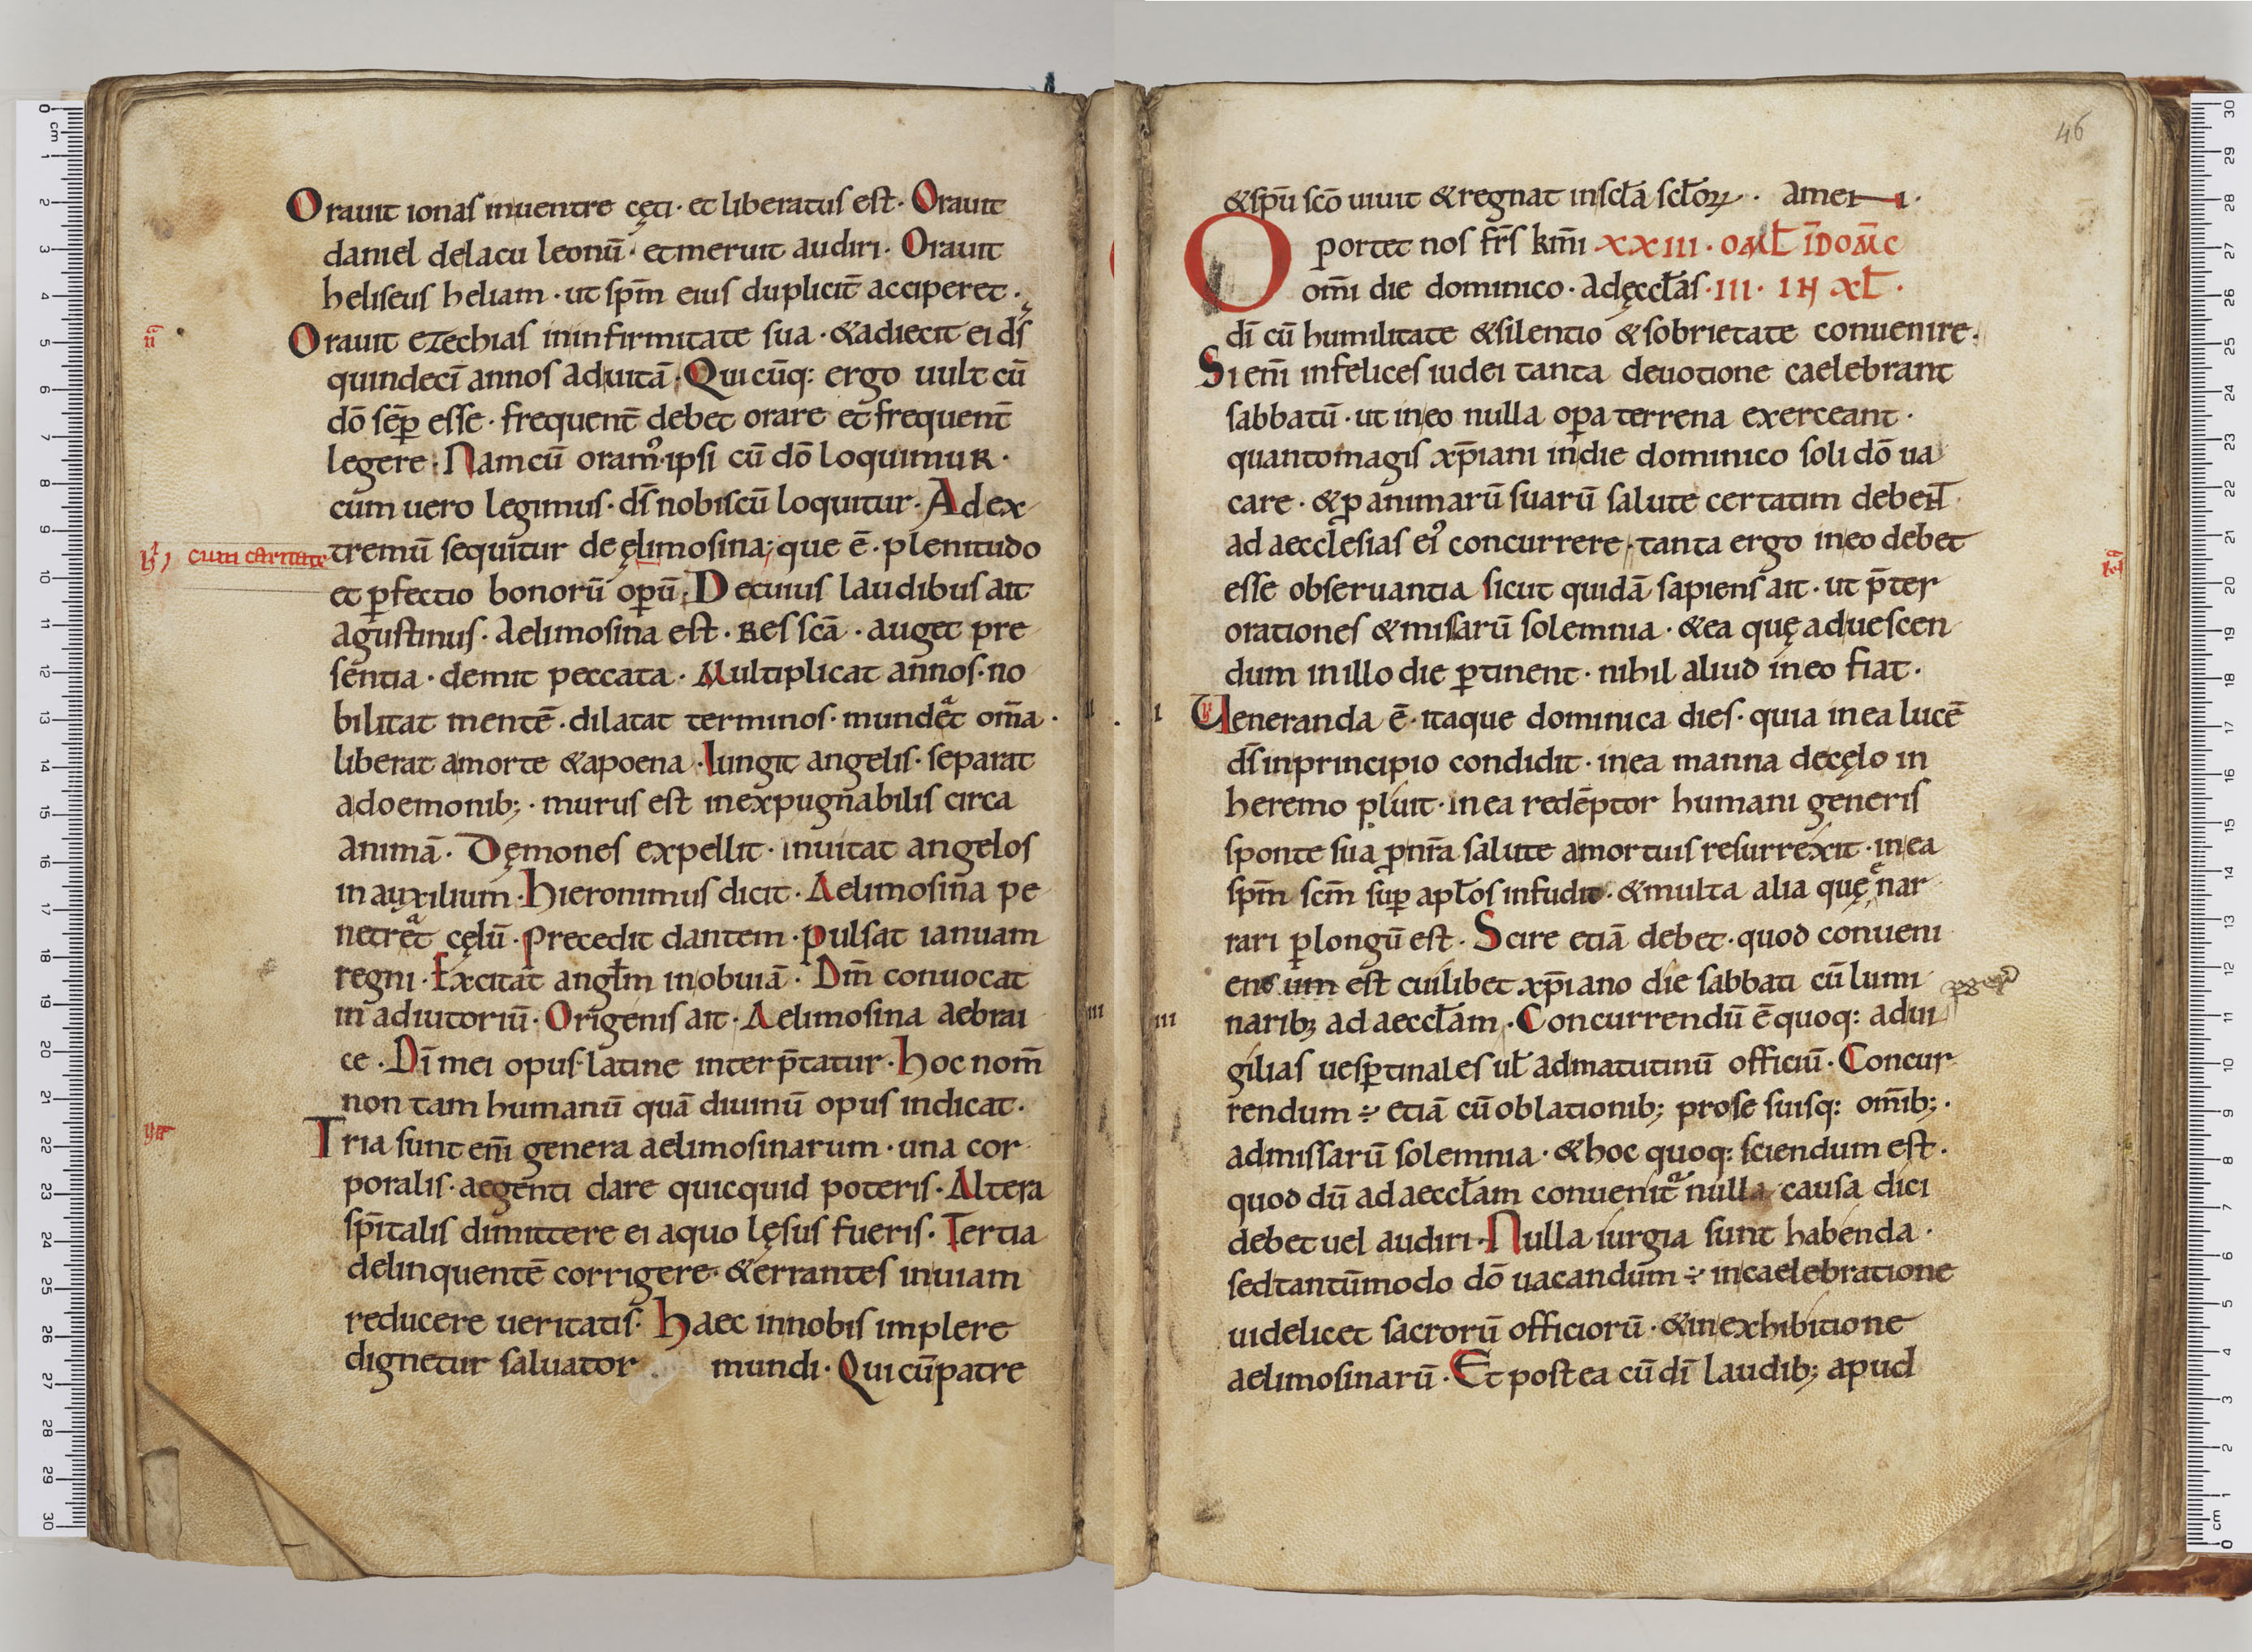 Orauit ionas inuentre cęti · et liberatus est · Orauit
daniel delacu leonū · et meruit audiri · Orauit
heliseus heliam · ut spm̄ eius duplicit̄ acciperet ·
Orauit ezechias ininfirmitate sua · &adiecit ei ds̄
quindecī annos aduitā · Qui cūq: ergo uult cū
dō sēp esse · frequent̄ debet orare et frequent̄
legere · Nam cū oram᾿ · ipsi cū dō loquimur ·
cum uero legimus · ds̄ nobiscū loquitur · Ad ex
cum caritate
tremū sequitur de ęlimosina; que ē · plenitudo
et ꝑfectio bonorū oꝑū · De cuius laudibus ait
agustinus · aelimosina est · res scā · auget pre
sentia · demit peccata · Multiplicat annos · no
bilitat mentē · dilatat terminos · mundet om̄a ·
liberat amorte &apoena · Iungit angelis · separat
adoemonib; · murus est inexpugnabilis circa
animā · Dęmones expellit · inuitat angelos
in auxilium · hieronimus dicit · Aelimosina pe
netret cęlū · precedit dantem · pulsat ianuam
regni · Excitat angłm inobuiā · Dm̄ conuocat
in adiutoriū · Origenis ait · Aelimosina aebrai
ce · Dī mei opus · latine interp̄tatur · hoc nom̄
non tam humanū quā diuinū opus indicat ·
Tria sunt enī genera aelimosinarum · una cor
poralis · aegenti dare quicquid poteris · Altera
sp̄italis dimittere ei aquo lęsus fueris · Tertia
delinquentē corrigere · &errantes inuiam
reducere ueritatis · haec innobis implere
dignetur saluator mundi · Qui cūpatre
46
&spū scō uiuit &regnat inscła scłoꝝ · amen ·
Oportet nos fr̄s km̄i XXIII · OML̄ ĪDOM̄C
om̄i die dominico · adęccłas · III · IN XL̄ ·
dī cū humilitate &silentio &sobrietate conuenire ·
Si enī infelices iudei tanta deuotione caelebrant
sabbatū · ut ineo nulla oꝑa terrena exerceant ·
quantomagis xp̄iani indie dominico soli dō ua
care · &ꝓ animarū suarū salute certatim debent
ad aecclesias ei᾿ concurrere · tanta ergo ineo debet
esse obseruantia sicut quidā sapiens ait · ut p̄ter
orationes &misarū solemnia · &ea quę aduescen
dum inillo die ꝑtinent · nihil aliud ineo fiat ·
I Ueneranda ē · itaque dominica dies · quia inea lucē
ds̄ inprincipio condidit · inea manna decęlo in
heremo pluit · inea redēptor humani generis
sponte sua ꝓnr̄a salute amortuis resurrexit · inea
spm̄ scm̄ suꝑ apłos infudit · &multa alia quę enar
rari ꝑlongū est · Scire etiā debet · quod conueni
ens um est cuilibet xp̄iano die sabbati cū lumi
III narib; ad aeccłam · Concurrendū ē quoq: adui
gilias uesꝑtinales uł admatutinū officiū · Concur
rendum ÷ etiā cū oblationib; prose suisq: om̄ib; ·
admissarū solemnia · &hoc quoq: sciendum est ·
quod dū ad aeccłam conuenit᾿ nulla causa dici
debet uel audiri · Nulla iurgia sunt habenda ·
sedtantūmodo dō uacandūm ÷ incaelebratione
uidelicet sacrorū officiorū · &inexhibitione
aelimosinarū · Et postea cū dī laudib; apud